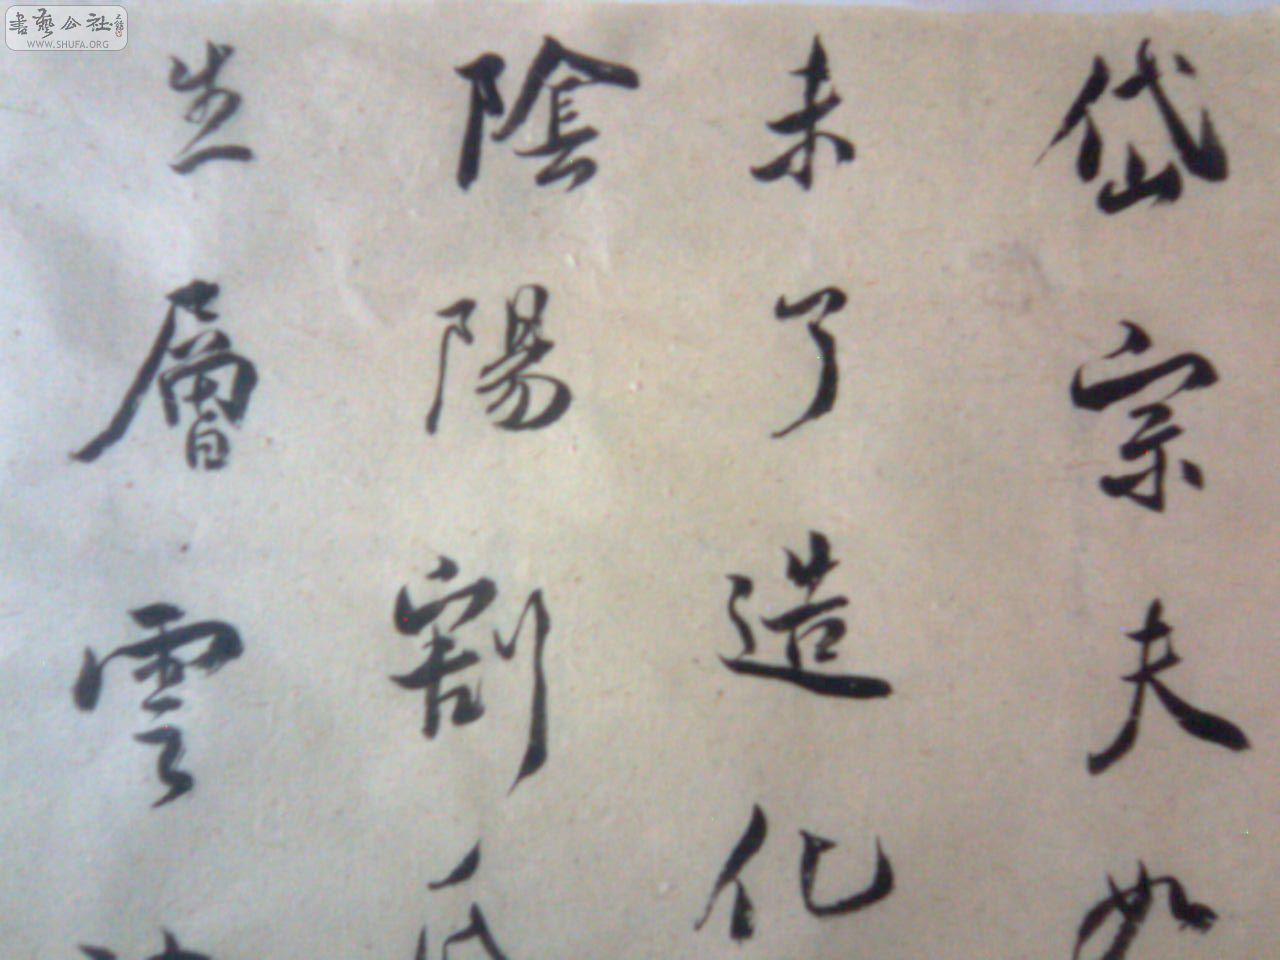 岱宗夫如
未了造化
陰陽割
生層雲
書藝公社
WWW.SHUFA.ORG